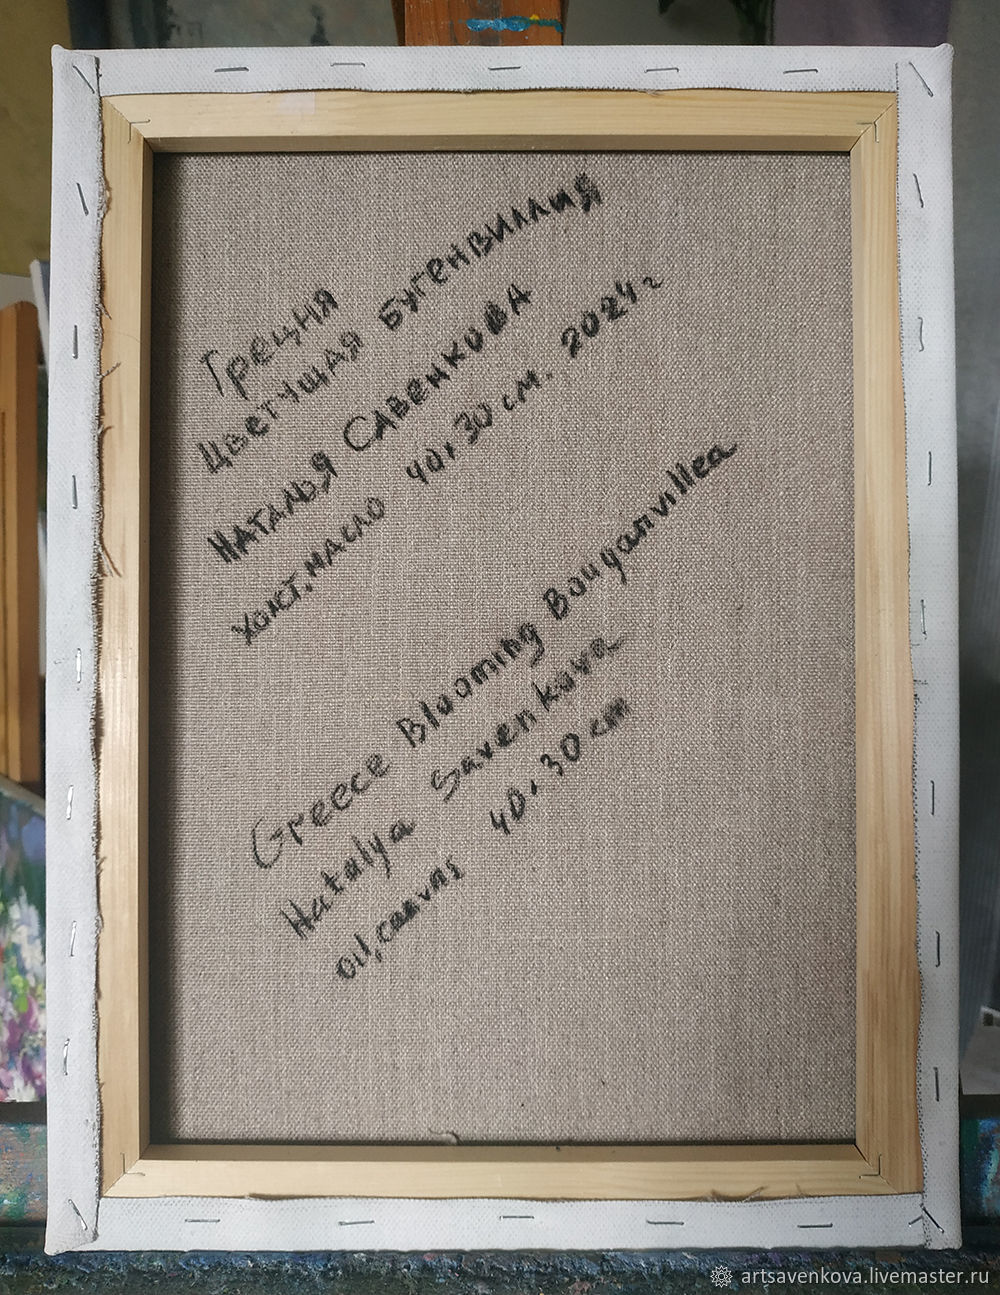 Греция
Цветущая Бугенвиллия
Наталья Савенкова
холст, масло 40x30 см. 2024 г
Greece Blooming Bouganvillea
Natalya Savenkova
Oil, canvas 40x30 cm
artsavenkova.livemaster.ru